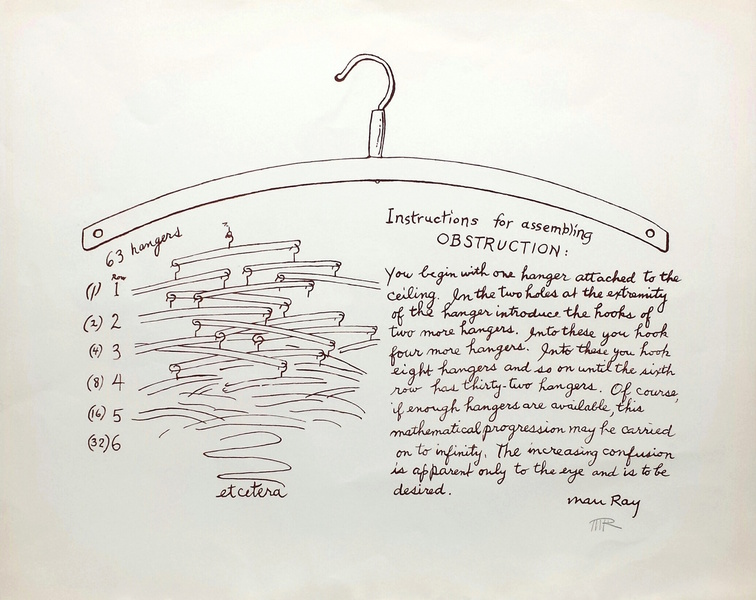 Instructions for assembling
OBSTRUCTION:
63 hangers
Row
(1) 1
(2) 2
(4) 3
(8) 4
(16) 5
(32) 6
etcetera
You begin with one hanger attached to the
ceiling. In the two holes at the extremity
of the hanger introduce the hooks of
two more hangers. Into these you hook
four more hangers. Into these you hook
eight hangers and so on until the sixth
row has thirty-two hangers. Of course,
if enough hangers are available, this
mathematical progression may be carried
on to infinity. The increasing confusion
is apparent only to the eye and is to be
desired.
Man Ray
MR